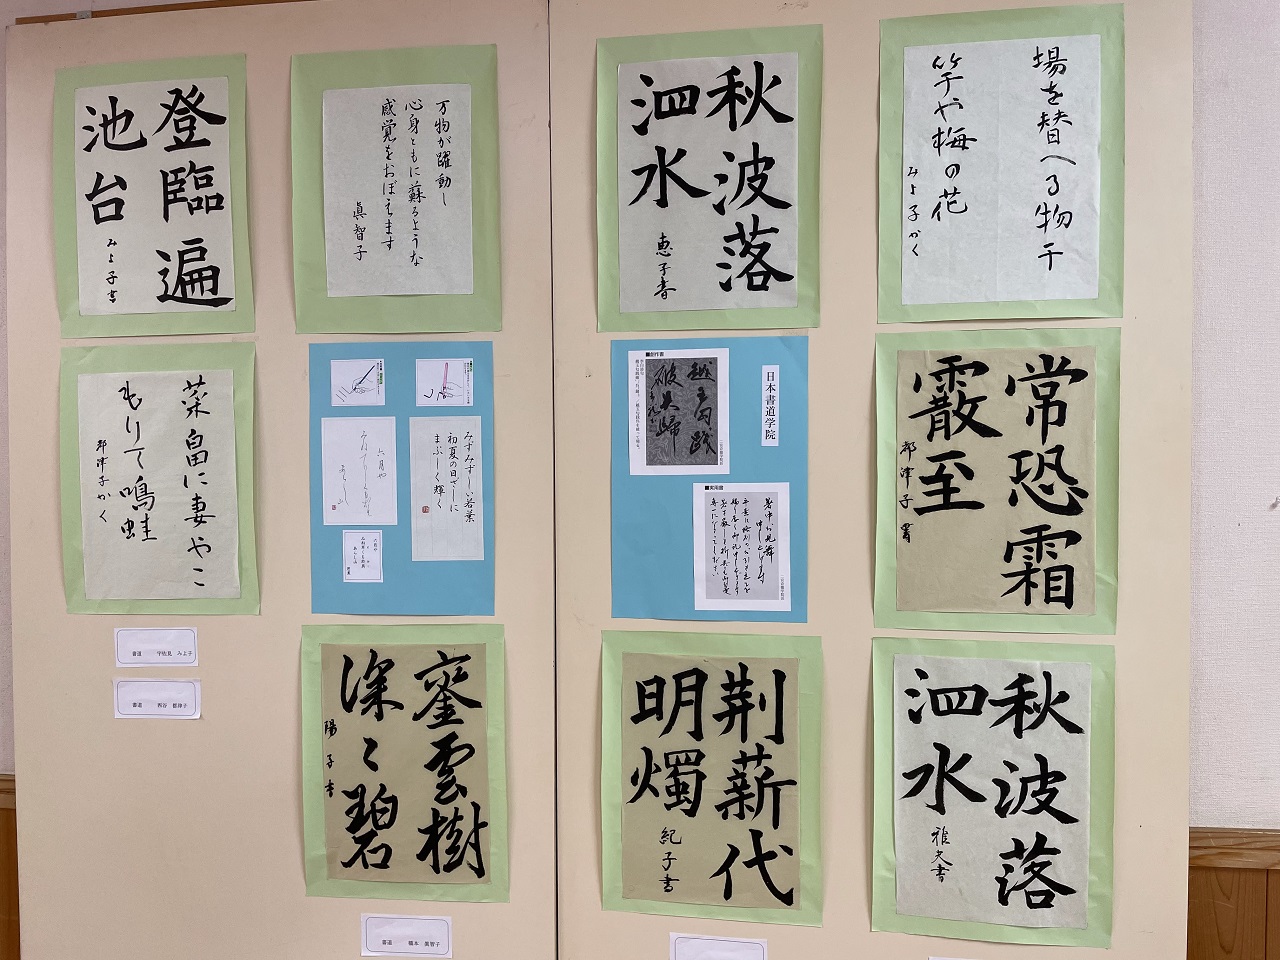 登臨遍
池台
みよ子書
万物が躍動し
心身ともに蘇るような
感覚をおぼえます
眞智子
秋波落
泗水
恵子書
場を替へる物干
竿や梅の花
みよ子かく
菜畠に妻やこ
もりて鳴蛙
都津子かく
みずみずしい若葉
初夏の日ざしに
まぶしく輝く
六月や
日本書道学院
■創作書
■実用書
暑中お見舞
申し上げます
常恐霜
霰至
都津子書
書道 宇佐見 みよ子
書道 西谷 都津子
鎏雲樹
深々碧
陽子書
荆薪代
明燭
紀子書
秋波落
泗水
雅夫書
書道 橋本 眞智子